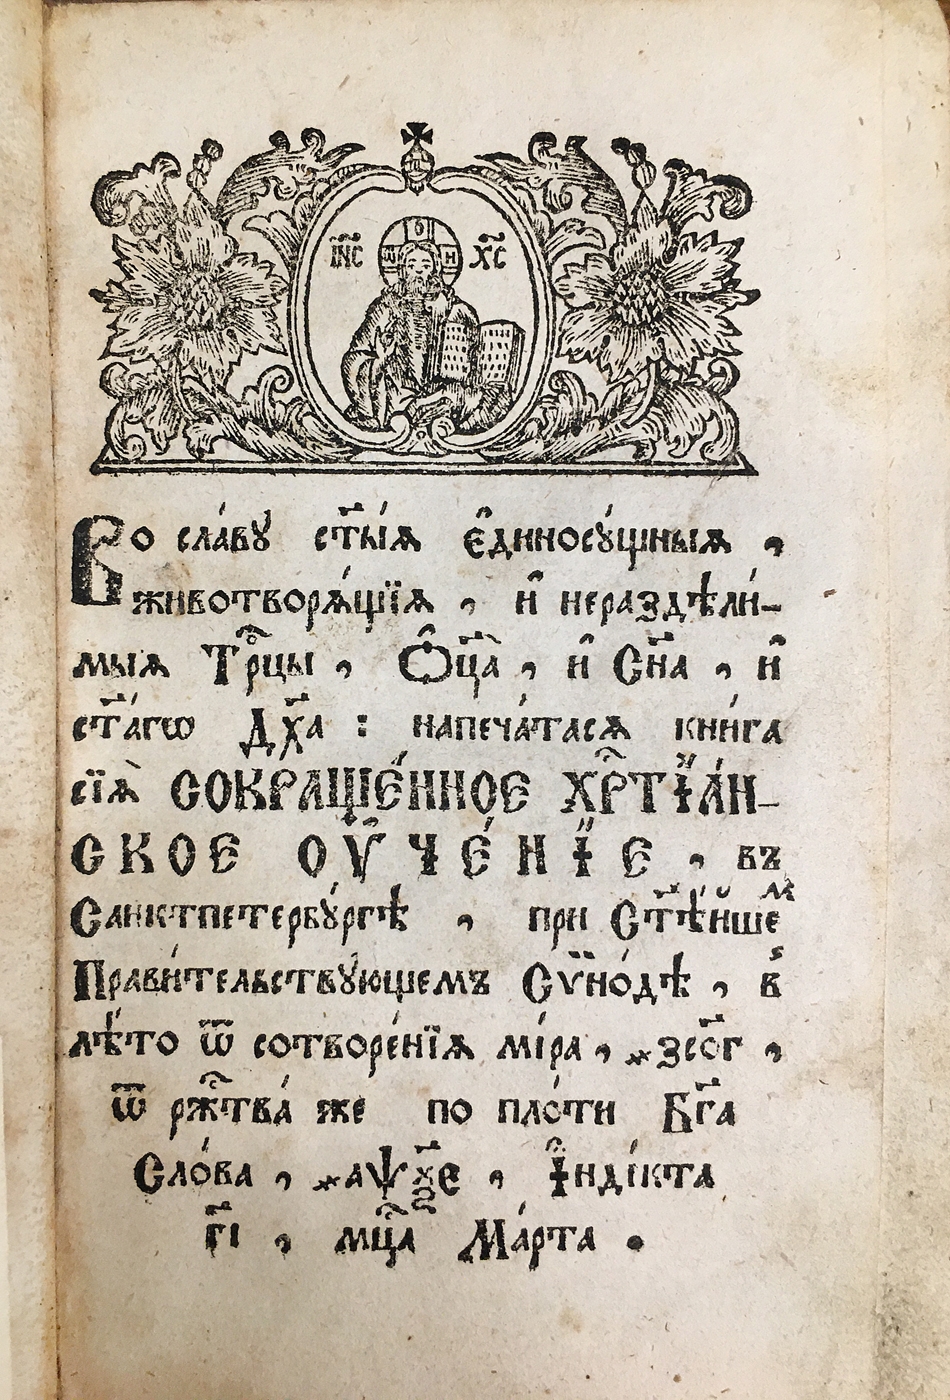 І҆И҃С Х҃С
Во сла́вꙋ ст҃ы́ѧ є҆диносꙋ́щныѧ ,
животворѧ́щїѧ , и҆ нераздѣли́-
мыѧ Трⷪ҇цы , Ѻ҆ц҃а̀ , и҆ Сн҃а , и҆
ст҃а́гѡ Дх҃а : напеча́тасѧ кни́га
сїѧ̀ СОКРАЩЕ́ННОЕ ХРⷭ҇ТІѦ́Н-
СКОЕ ОУ҆ЧЕ́НІЕ , въ
Санктпетербꙋ́ргѣ , при Ст҃ѣ́йшеⷨ
Прави́тельствꙋющемъ Сѵно́дѣ , в̾
лѣ́то ѿ сотворе́нїѧ мі́ра , ҂зсо҃г ,
ѿ рж҇тва́ же по пло́ти Бг҃а
Сло́ва , ҂аѱѯ҃е , І҆ндı́кта
г҃і , мц҇а Ма́рта .